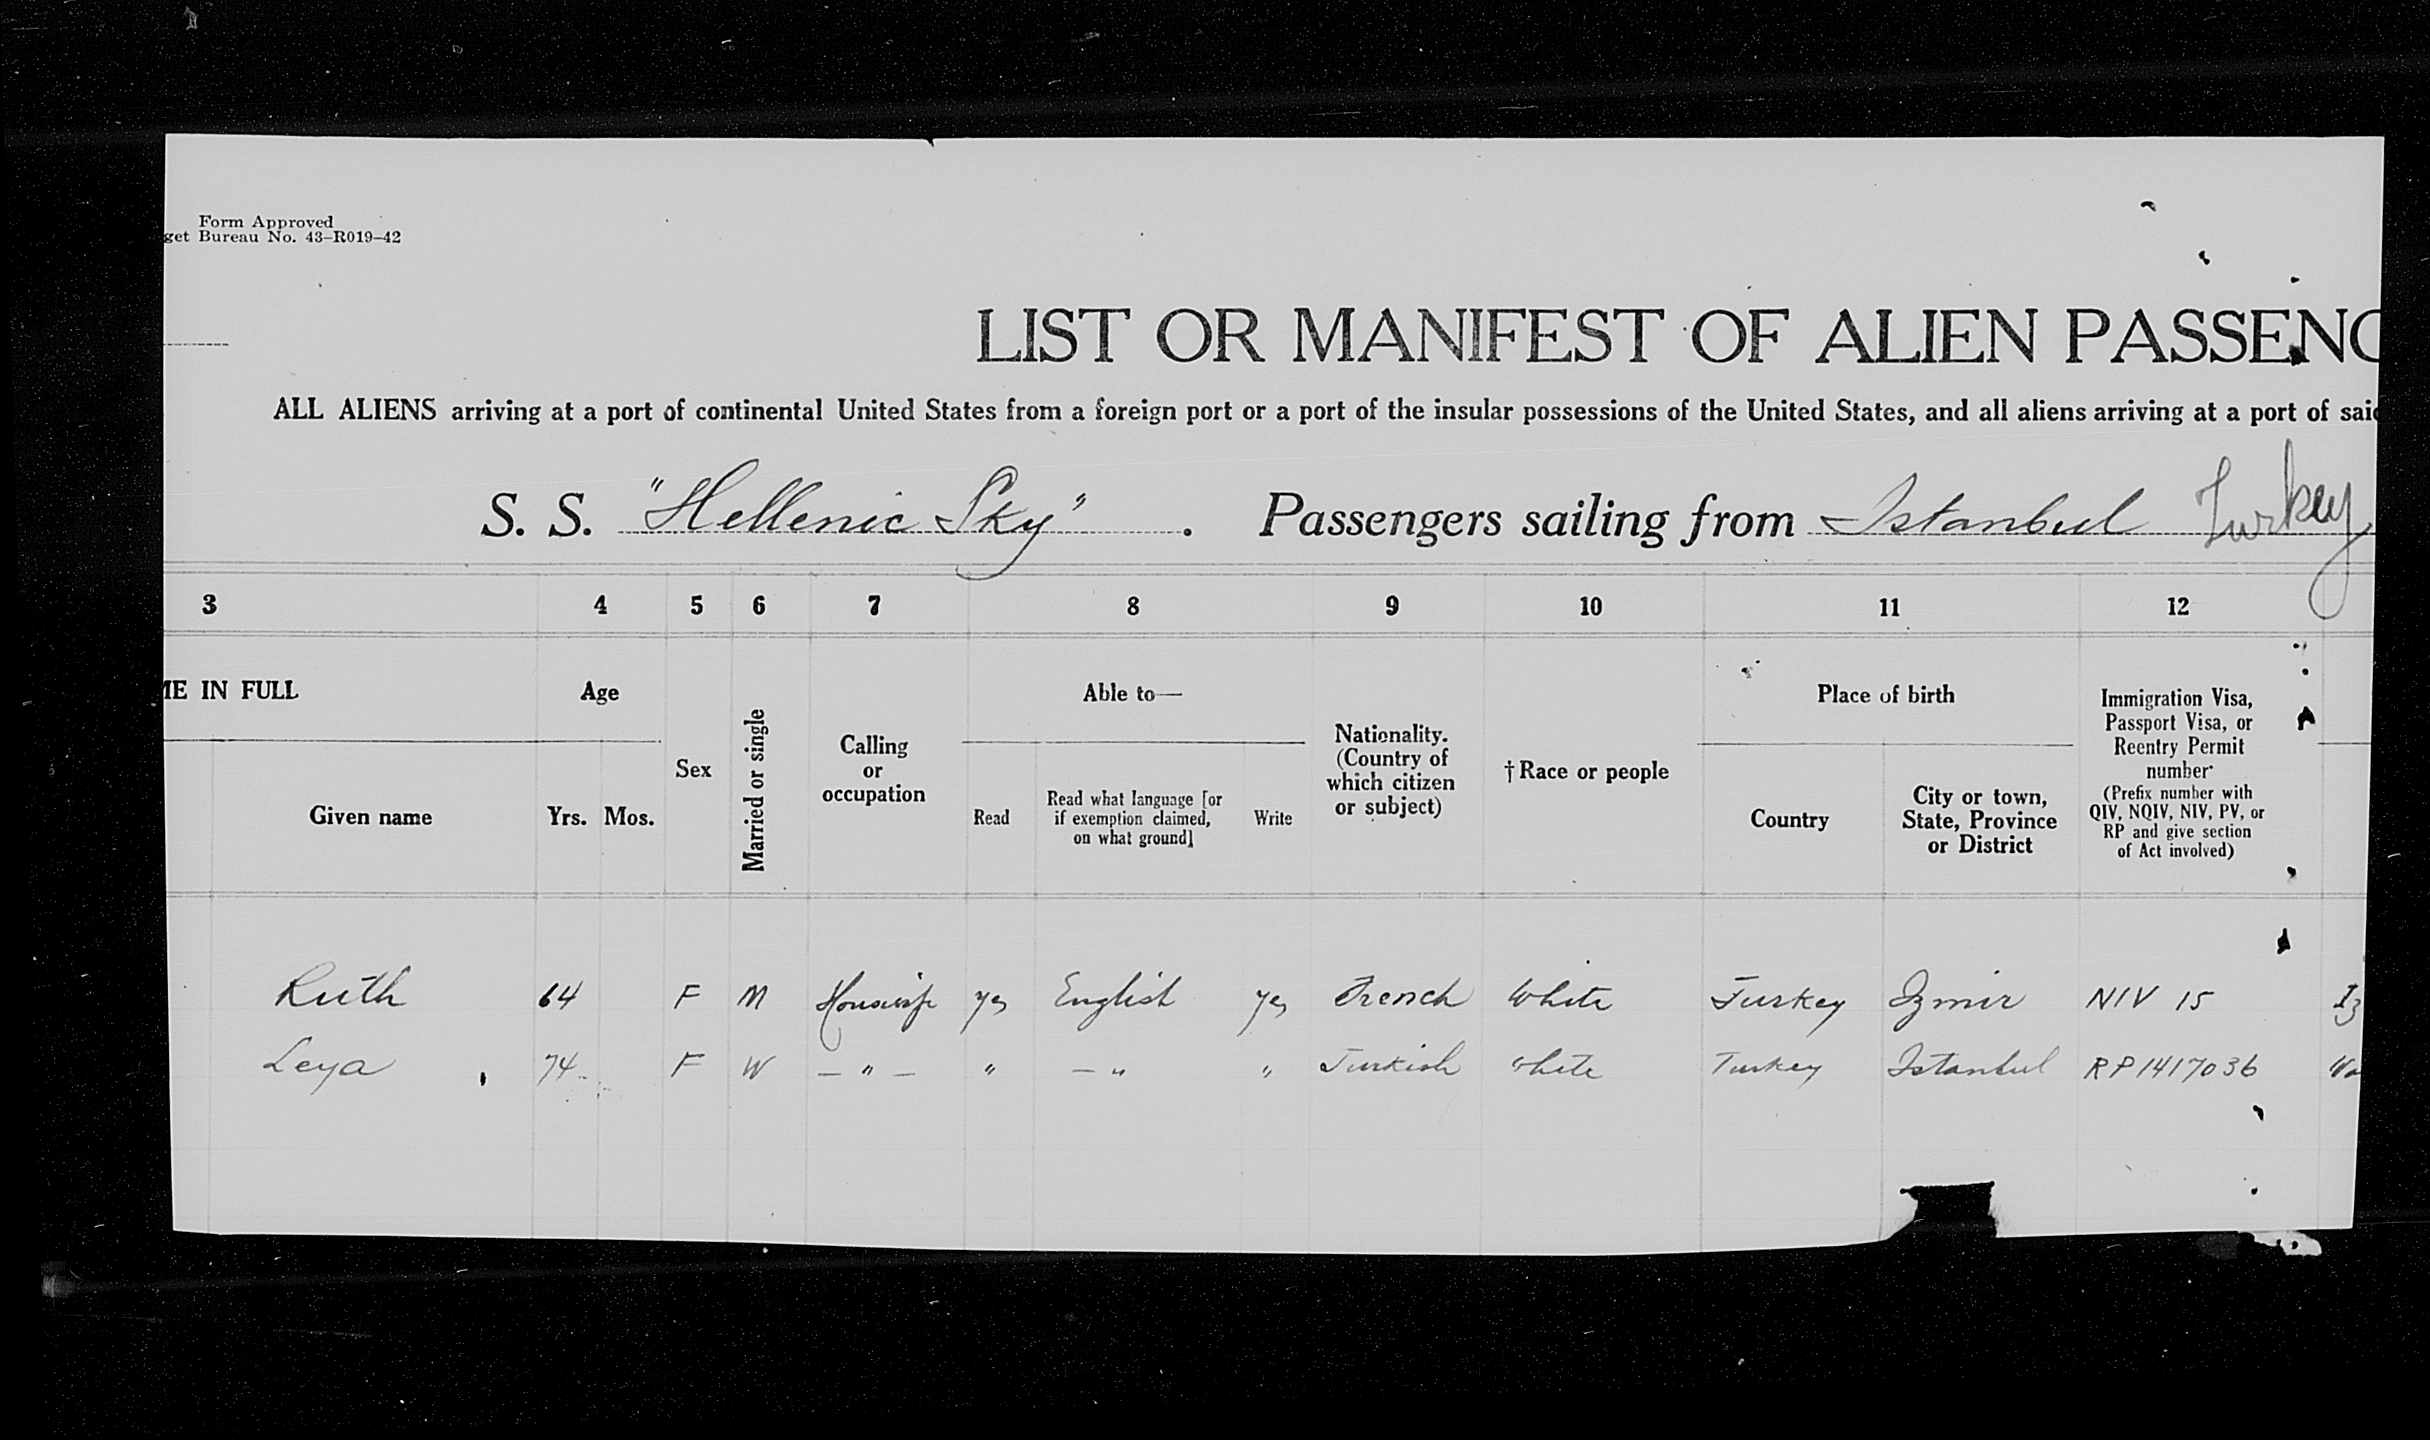 Form Approved
get Bureau No. 43–R019–42
LIST OR MANIFEST OF ALIEN PASSENG
ALL ALIENS arriving at a port of continental United States from a foreign port or a port of the insular possessions of the United States, and all aliens arriving at a port of said
S. S. "Hellenic Sky" . Passengers sailing from Istanbul Turkey
3 4 5 6 7 8 9 10 11 12
ME IN FULL
Given name
Age
Yrs. Mos.
Sex
Married or single
Calling
or
occupation
Able to—
Read
Read what language [or
if exemption claimed,
on what ground]
Write
Nationality.
(Country of
which citizen
or subject)
†Race or people
Place of birth
Country
City or town,
State, Province
or District
Immigration Visa,
Passport Visa, or
Reentry Permit
number
(Prefix number with
QIV, NQIV, NIV, PV, or
RP and give section
of Act involved)
Ruth 64 F M Housewife yes English yes French White Turkey Izmir NIV 15 Iz
Leya 74 F W — " — " — " " Turkish White Turkey Istanbul RP1417036